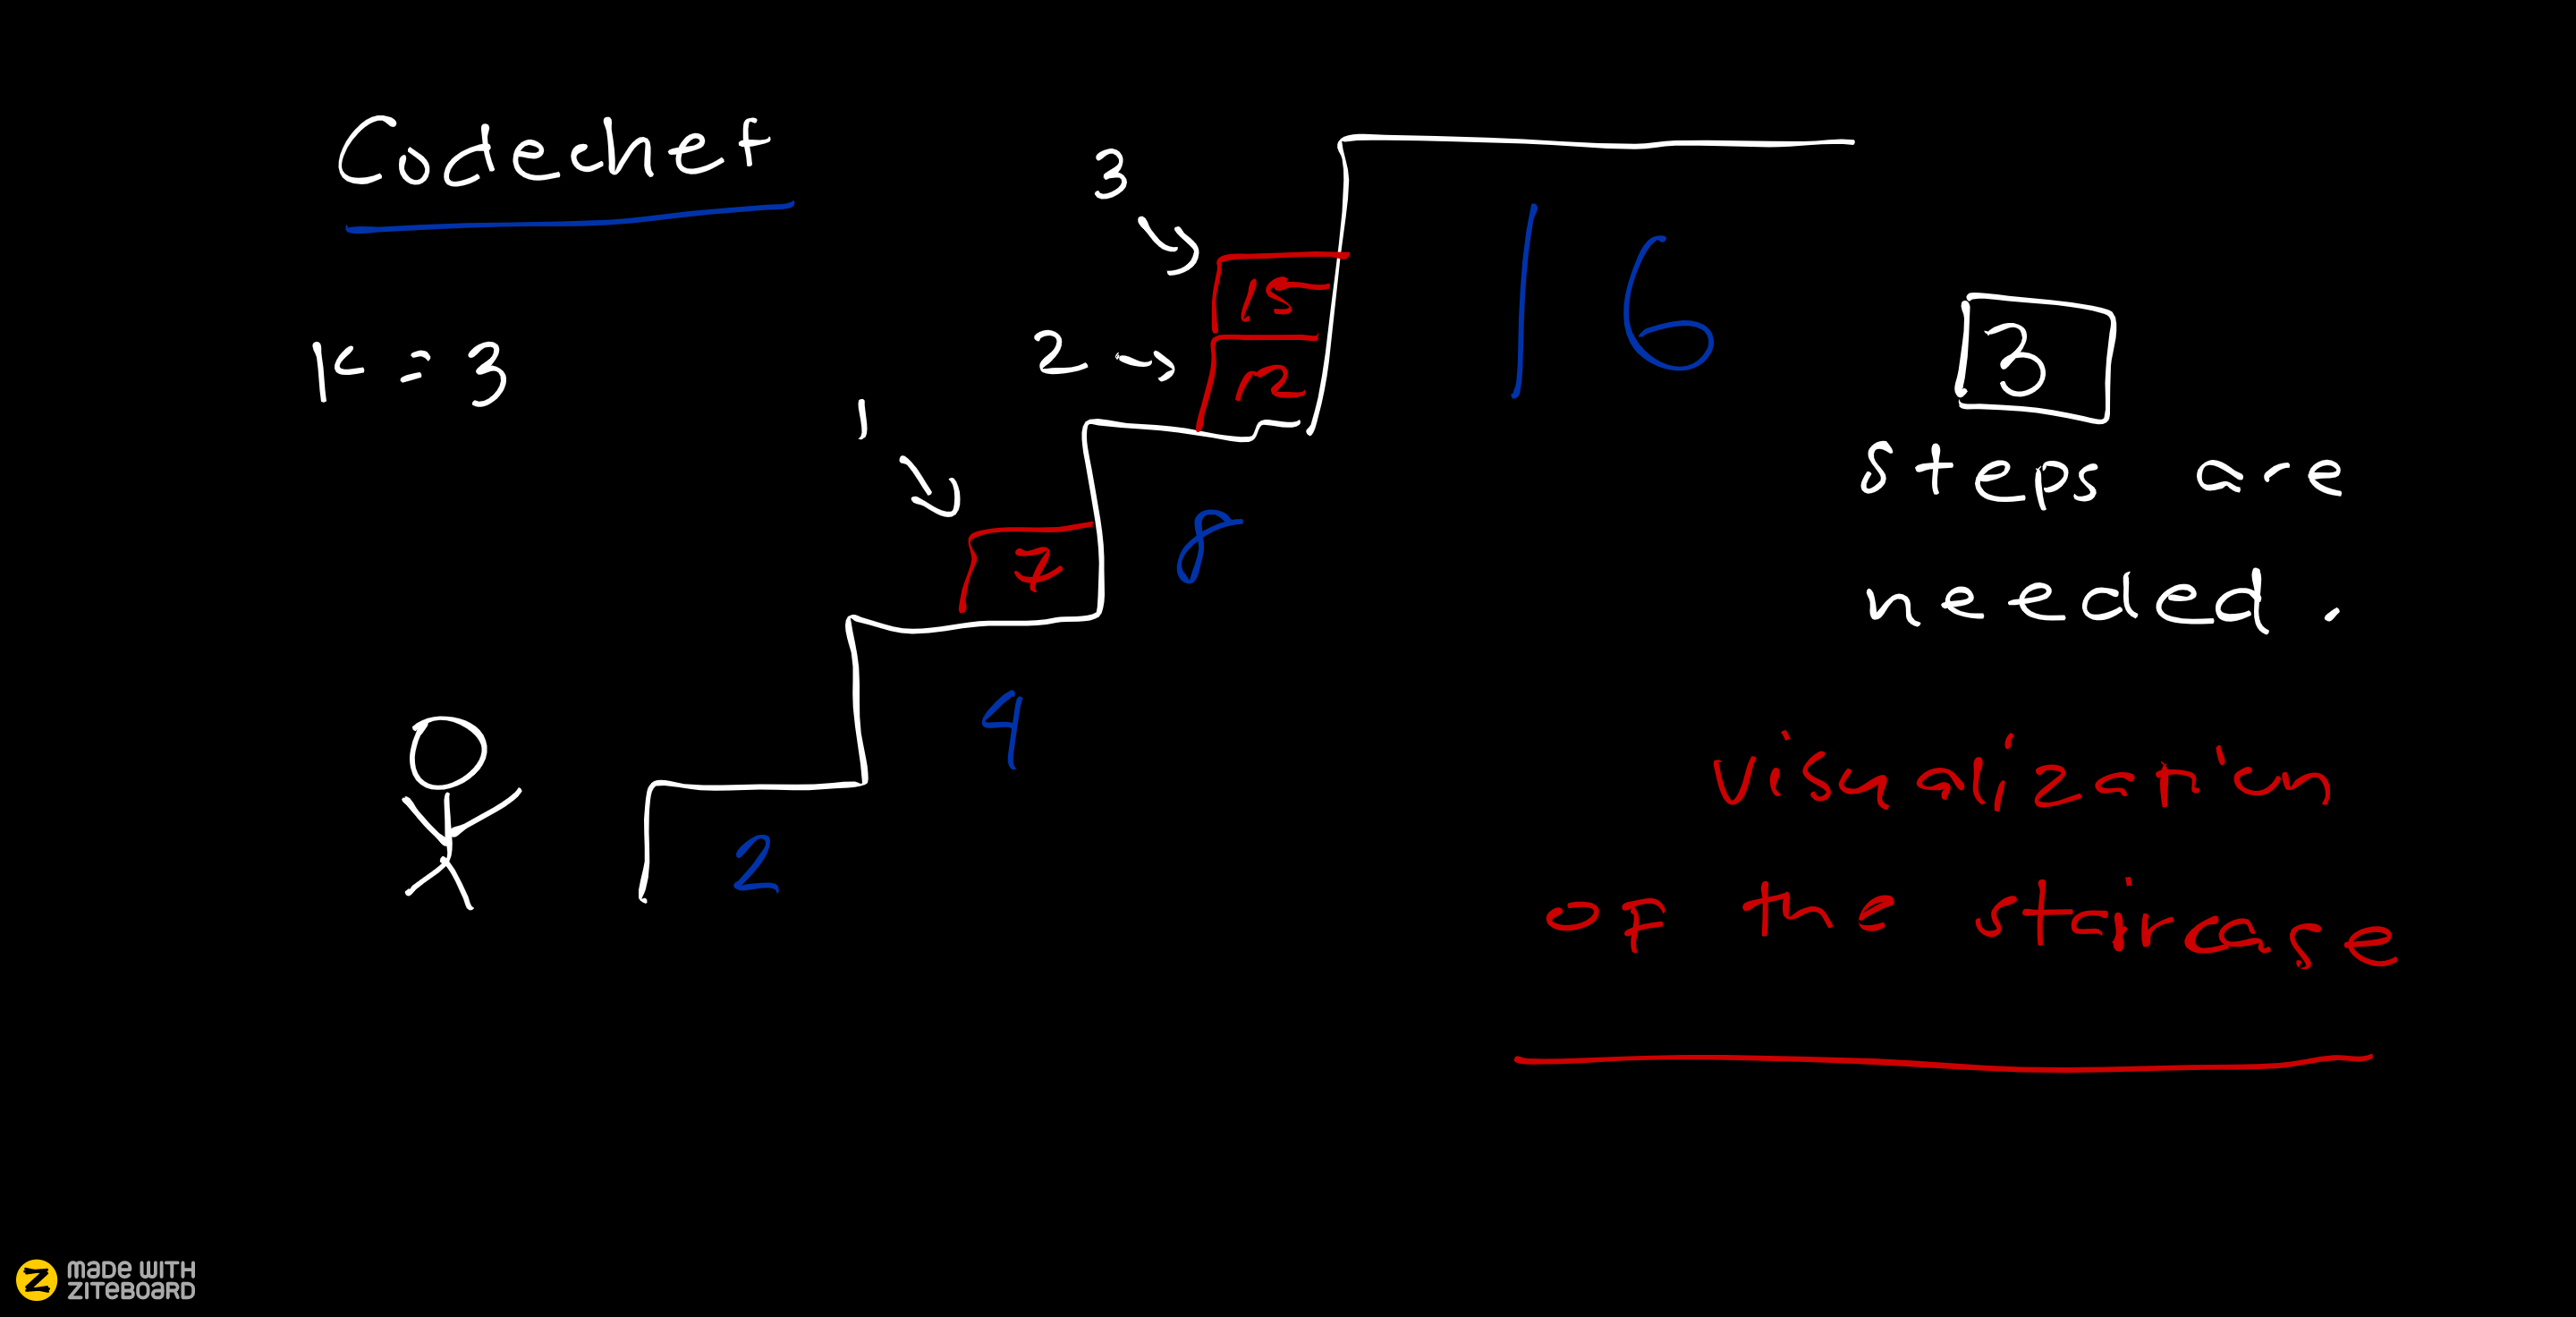 Codechef
3
15
16
K = 3
2
12
3
1
steps are
7
8
needed.
4
visualization
2
of the staircase
MADE WITH
ZITEBOARD